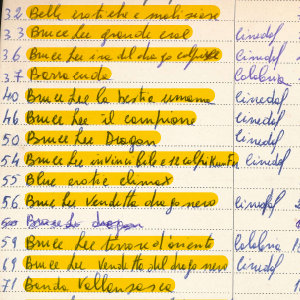 32 Belle erotiche e maliziose
33 Bruce Lee grande eroe cinedef
36 Bruce Lee ira del drago colpisce cinedof
37 Barracuda Colabria
40 Bruce Lee la bestia umana cinedof
46 Bruce Lee il campione cinedof
50 Bruce Lee Dragon cinedof
54 Bruce Lee invincibile e se colpi Kun Fu cinedof
55 Blue erotic climax
56 Bruce Lee vendetta drago nero cinedof
58 Bruce Lee dragon
59 Bruce Lee terrore d'oriente Colabria
69 Bruce Lee Vendetta del drago nero cinedof
71 Banda Vallanzasca